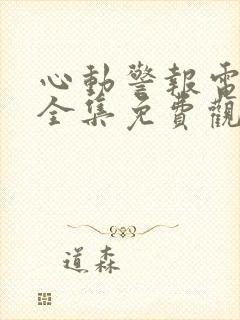 心動警報電
全集免費觀
道森